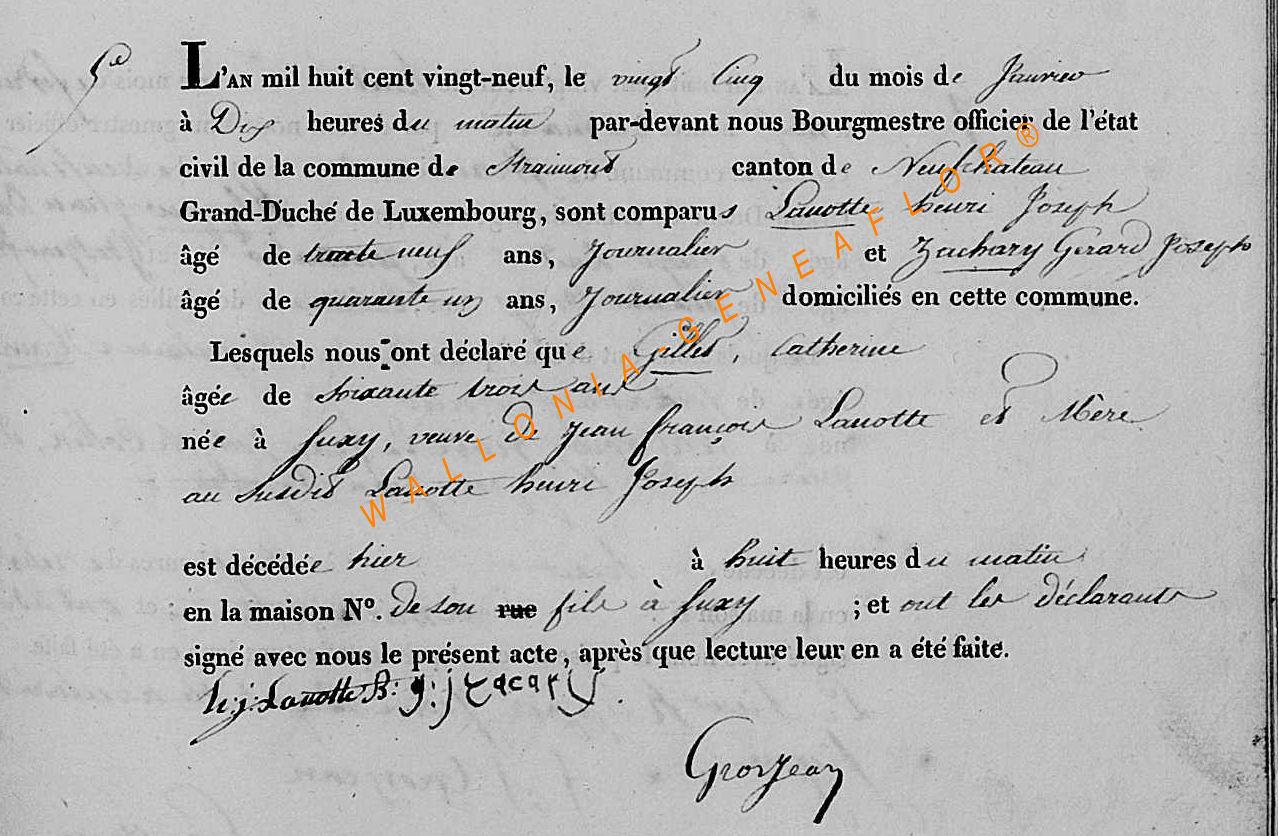 5e
L'AN mil huit cent vingt-neuf, le vingt Cinq du mois de Janvier
à Dix heures du matin par-devant nous Bourgmestre officier de l'état
civil de la commune de Straimont canton de Neufchateau
Grand-Duché de Luxembourg, sont comparus Lanotte henri Joseph
âgé de trente neuf ans, Journalier et Zachary Gerard Joseph
âgé de quarante un ans, Journalier domiciliés en cette commune.
Lesquels nous ont déclaré que Gilles, Catherine
âgée de Soixante trois ans
née à Suxy, veuve de Jean françois Lanotte et Mère
au Susdit Lanotte henri Joseph
est décédée hier à huit heures du matin
en la maison No. De son rue fils à Suxy ; et ont les déclarants
signé avec nous le présent acte, après que lecture leur en a été faite.
h: j: Lanotte g: j zacary
Grosjean
WALLONIA-GENEAFLOR®